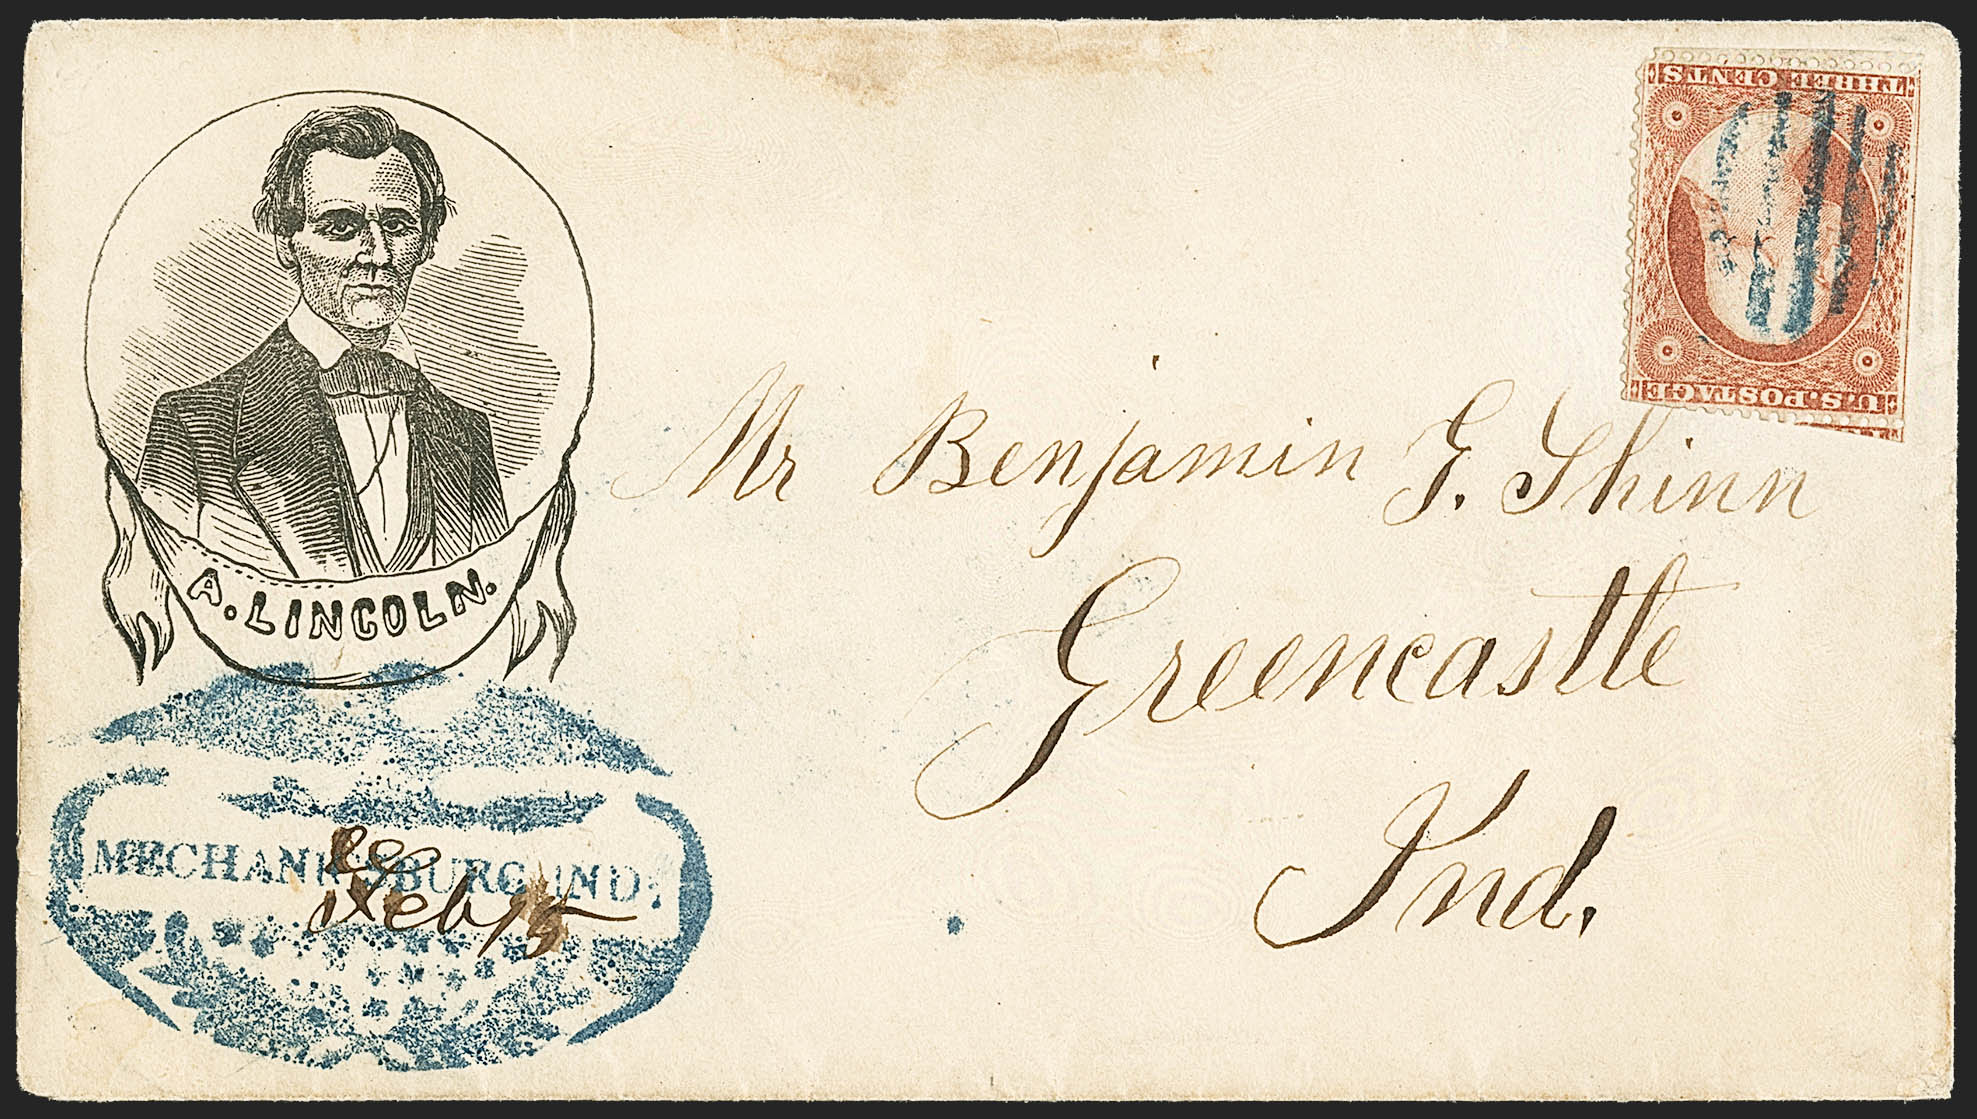 THREE CENTS
U.S. POSTAGE
A. LINCOLN.
Mr Benjamin G. Shinn
Greencastle
Ind.
MECHANICSBURG IND.
Feb 15